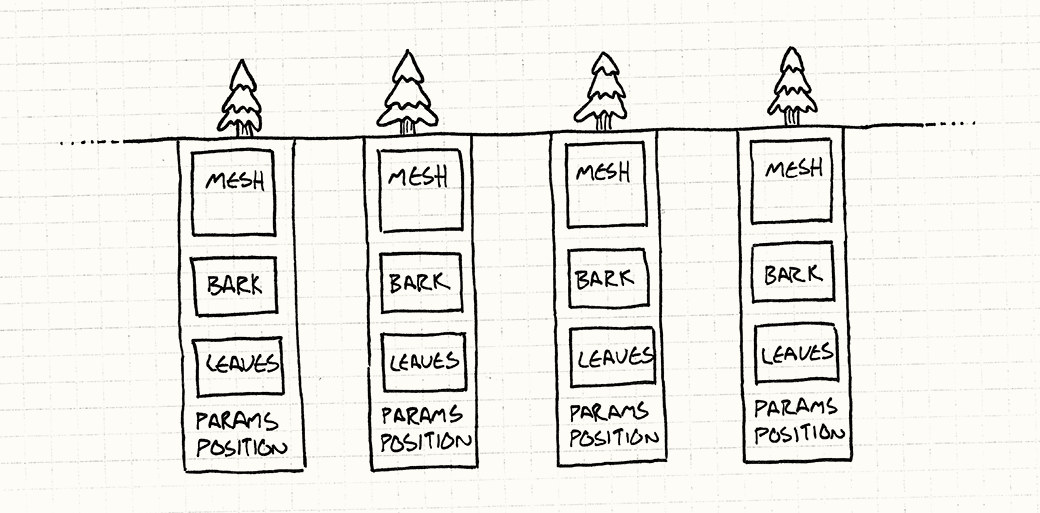 MESH
BARK
LEAVES
PARAMS
POSITION
MESH
BARK
LEAVES
PARAMS
POSITION
MESH
BARK
LEAVES
PARAMS
POSITION
MESH
BARK
LEAVES
PARAMS
POSITION